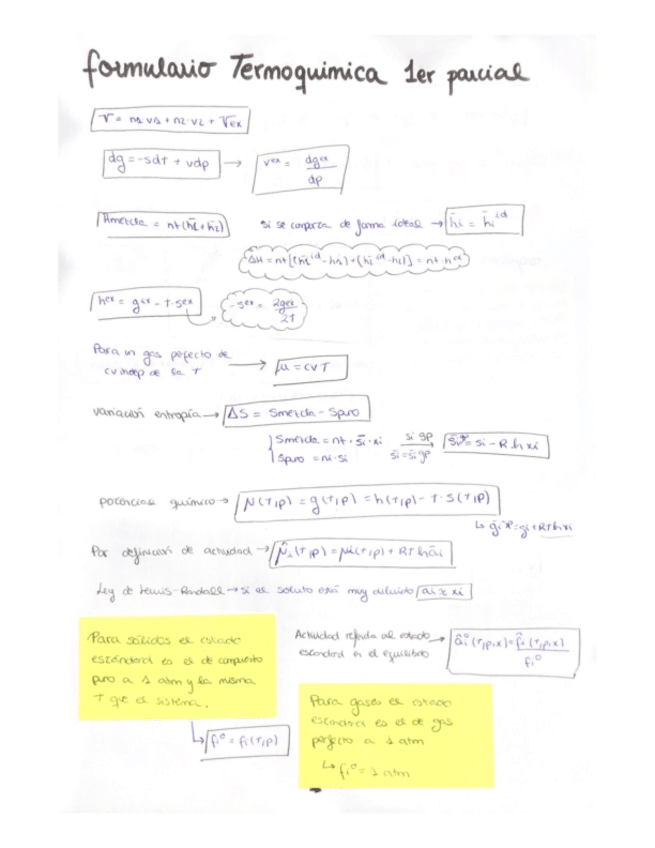 formulario Termoquimica 1er parcial
V = n1·v1 + n2·v2 + Vex
dg = -sdt + vdp → v^ex = dg^ex / dp
Hmezcla = nt(h̄1+h̄2) si se comporta de forma ideal → h̄i = h̄i^id
ΔH = nt[(h̄1^id - h1) + (h̄2^id - h2)] = nt·h^ex
h^ex = g^ex - t·s^ex -s^ex = ∂g^ex / ∂t
Para un gas perfecto de
cv indep de la T → μ = cv T
variación entropía → ΔS = Smezcla - Spuro
Smezcla = nt · s̄i · xi si gp
Spuro = ni·si s̄i = s̄i^gp s̄i^gp = si - R ln xi
potencial químico → μ(T,P) = g(T,P) = h(T,P) - T·S(T,P)
↳ ḡi^gp = gi + RT ln xi
Por definición de actividad → μ̂i(T,P) = μi(T,P) + RT ln âi
Ley de Lewis-Randall → si el soluto está muy diluido ai ≈ xi
Para sólidos el estado
estándard es el de compuesto
puro a 1 atm y la misma
T que el sistema.
↳ fi° = fi(T,P)
Actividad referida al estado
estandard en el equilibrio → âi°(T,P,x) = f̂i(T,P,x) / fi°
Para gases el estado
estandard es el de gas
perfecto a 1 atm
↳ fi° = 1 atm